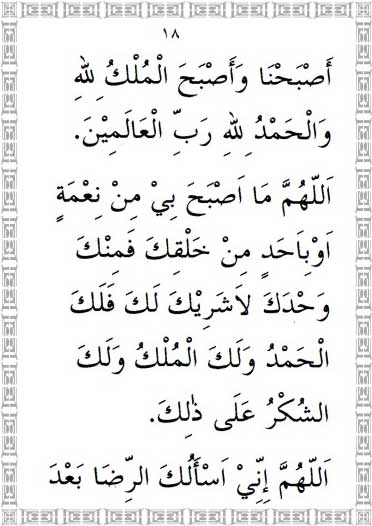 ١٨
أَصْبَحْنَا وَأَصْبَحَ الْمُلْكُ لِلّٰهِ
وَالْحَمْدُ لِلّٰهِ رَبِّ الْعَالَمِيْنَ.
اَللّٰهُمَّ مَا اَصْبَحَ بِيْ مِنْ نِعْمَةٍ
اَوْبِاَحَدٍ مِنْ خَلْقِكَ فَمِنْكَ
وَحْدَكَ لَاشَرِيْكَ لَكَ فَلَكَ
الْحَمْدُ وَلَكَ الْمُلْكُ وَلَكَ
الشُكْرُ عَلَى ذٰلِكَ.
اَللّٰهُمَّ إِنِّيْ اَسْأَلُكَ الرِّضَا بَعْدَ